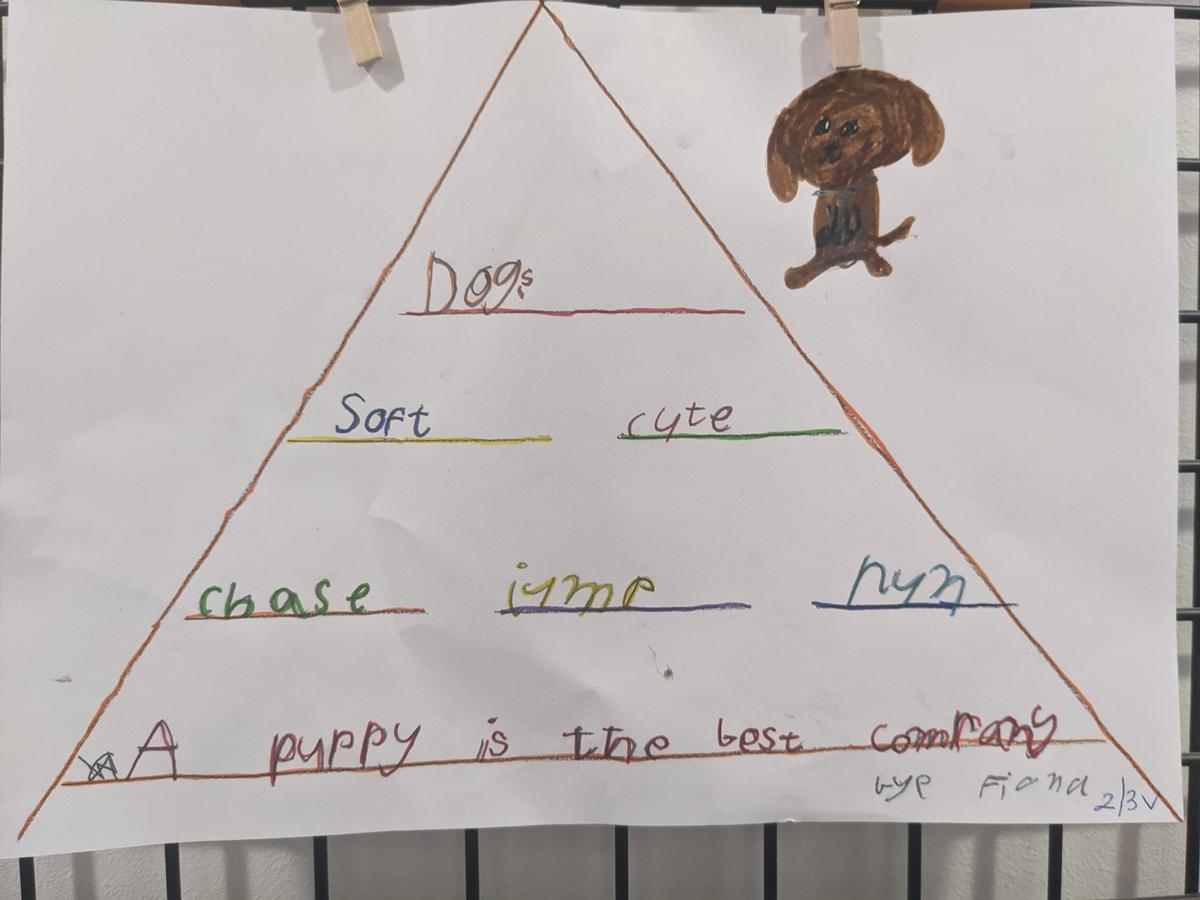 Dogs
Soft cyte
chase jymp ryn
A pyppy is the best company
bye Fiona 2/3V